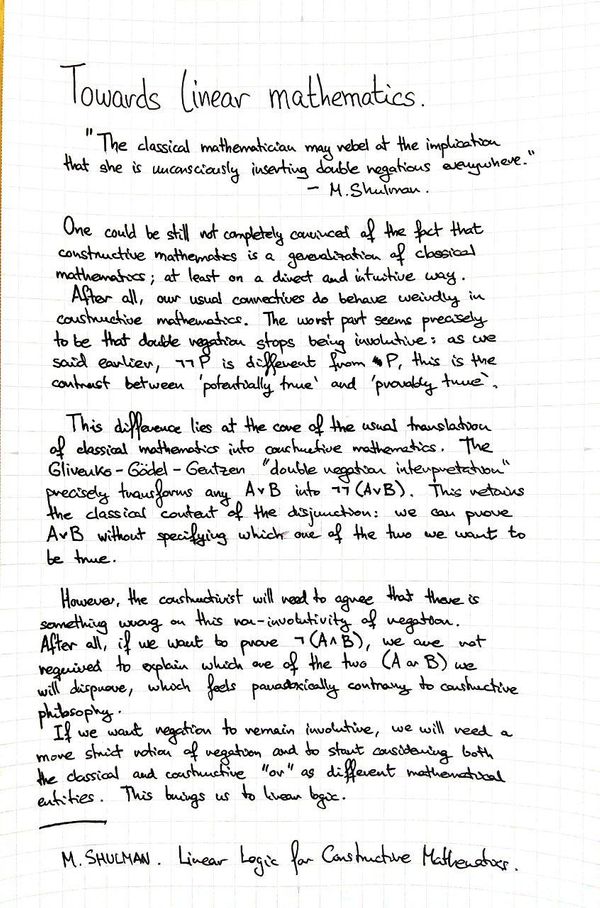 Towards linear mathematics.
"The classical mathematician may rebel at the implication
that she is unconsciously inserting double negations everywhere."
– M.Shulman.
One could be still not completely convinced of the fact that
constructive mathematics is a generalization of classical
mathematics; at least on a direct and intuitive way.
After all, our usual connectives do behave weirdly in
constructive mathematics. The worst part seems precisely
to be that double negation stops being involutive: as we
said earlier, ¬¬P is different from P, this is the
contrast between 'potentially true' and 'provably true'.
This difference lies at the core of the usual translation
of classical mathematics into constructive mathematics. The
Glivenko-Gödel-Gentzen "double negation interpretation"
precisely transforms any A∨B into ¬¬(A∨B). This retains
the classical content of the disjunction: we can prove
A∨B without specifying which one of the two we want to
be true.
However, the constructivist will need to agree that there is
something wrong on this non-involutivity of negation.
After all, if we want to prove ¬(A∧B), we are not
required to explain which one of the two (A or B) we
will disprove, which feels paradoxically contrary to constructive
philosophy.
If we want negation to remain involutive, we will need a
more strict notion of negation and to start considering both
the classical and constructive "or" as different mathematical
entities. This brings us to linear logic.
M. SHULMAN. Linear Logic for Constructive Mathematics.